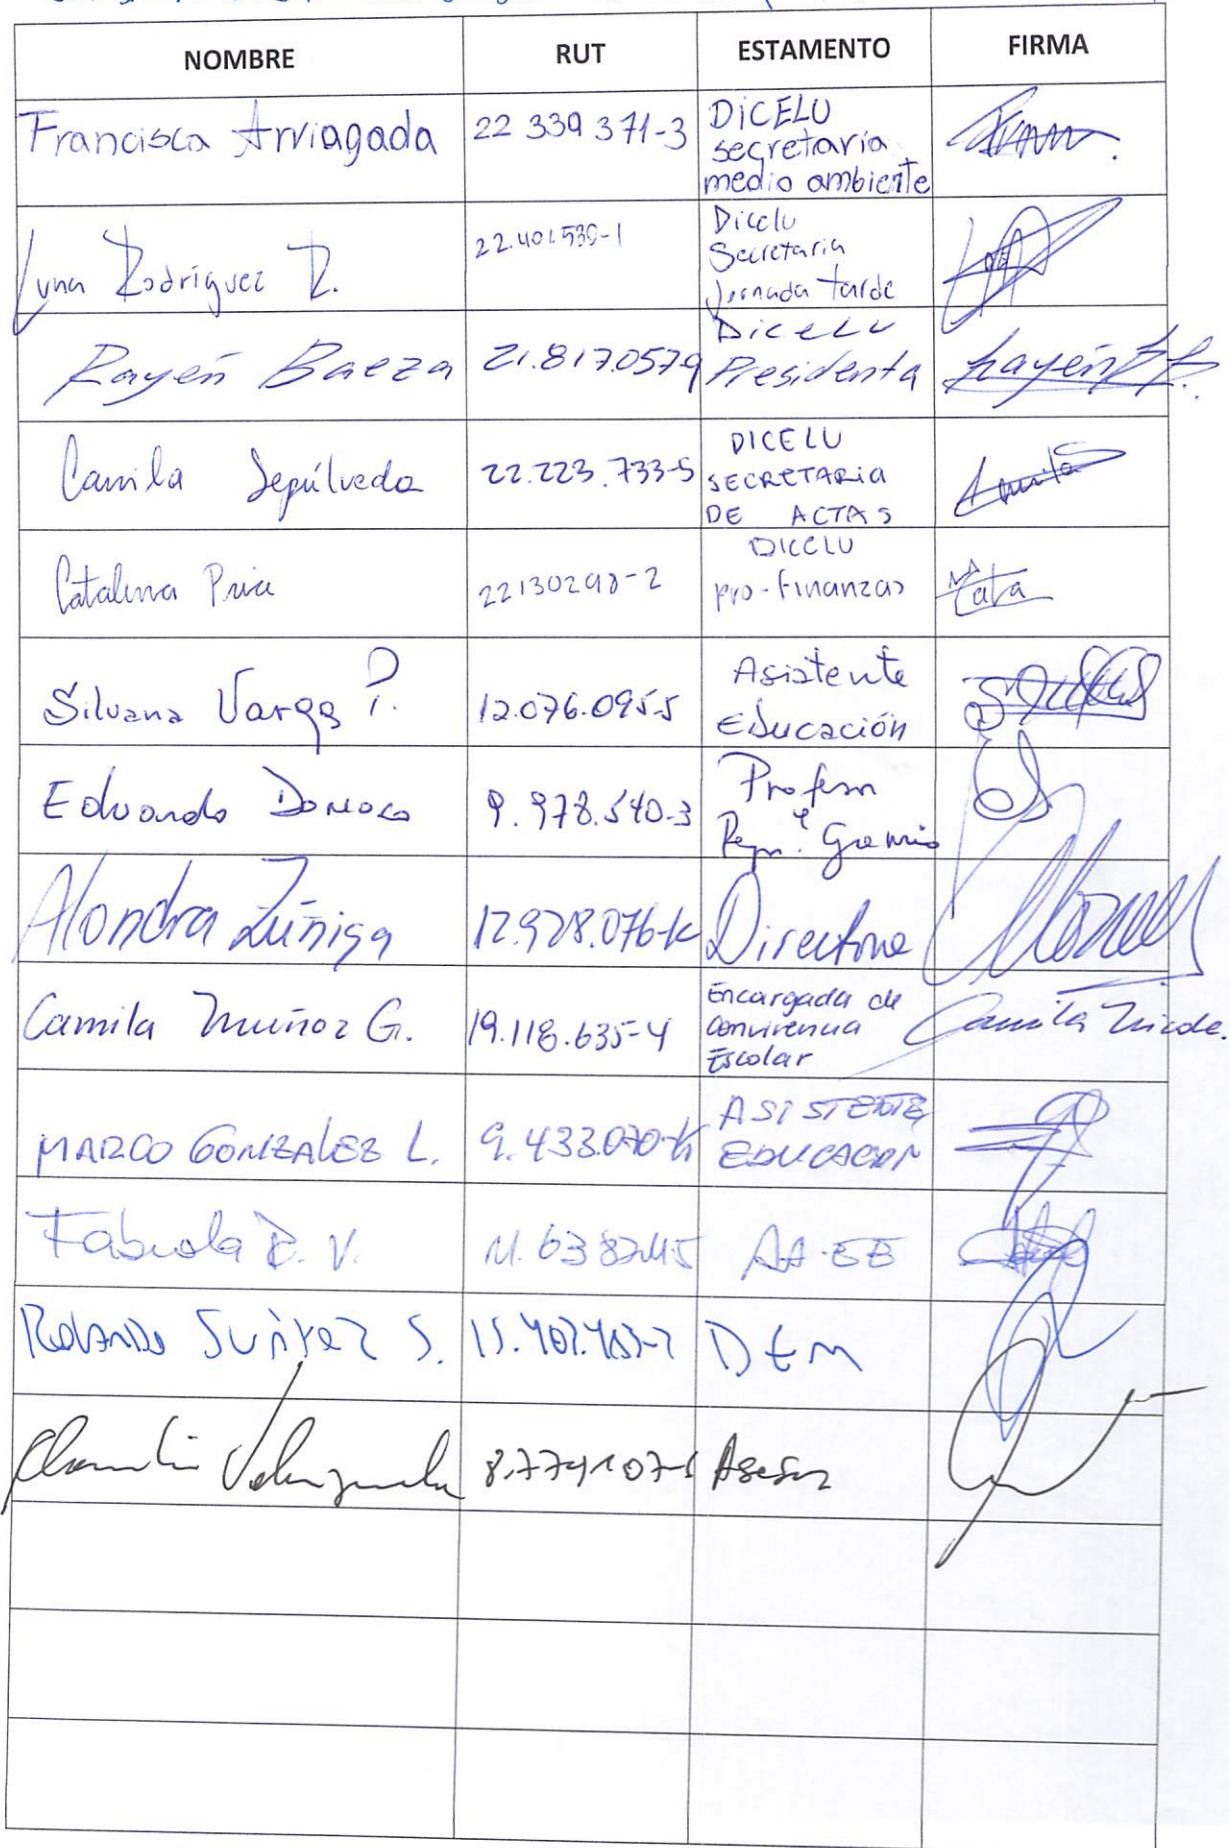 NOMBRE RUT ESTAMENTO FIRMA
Francisca Arriagada 22 339 371-3 DiCELU
secretaría
medio ambiente
Luna Rodríguez R. 22.401.539-1 Dicelu
Secretaria
Jornada tarde
Rayén Baeza 21.817.057-9 Dicelu
Presidenta
Camila Sepúlveda 22.223.733-5 DICELU
SECRETARIA
DE ACTAS
Catalina 22130298-2 DICELU
pro-finanzas
Silvana Vargas P. 12.076.095-5 Asistente
Educación
Eduardo Donoso 9.978.540-3 Profesor
e
Repr. Gremio
Alondra Zúñiga 12.928.076-K Directora
Camila Muñoz G. 19.118.635-4 Encargada de
Convivencia
Escolar
Camila Nicole.
MARCO GONZALEZ L. 9.433.070-K ASISTENTE
EDUCACION
Fabiola R. V. AA-EE
Rolando Suárez S. DEM
Claudio Valenzuela Asesor